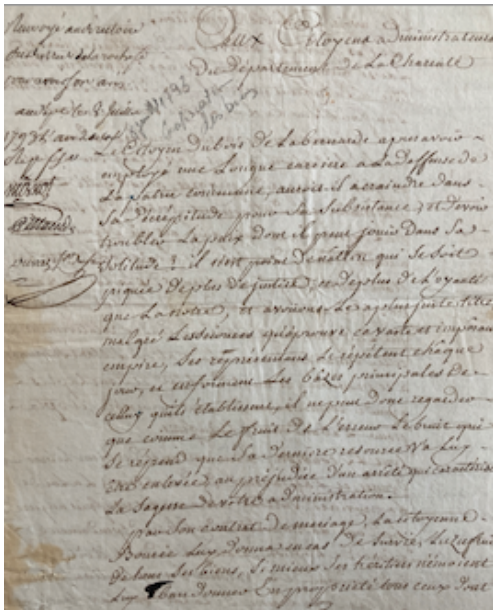 Renvoyé au directoire
du district de la rochefte
pour avoir son avis
1793
Aux Citoyens administrateurs
Du Département de La Charente
Le Citoyen dubois de Labernarde apres avoir
employé une Longue carriere a La deffense de
La patrie commune, auroit il a craindre dans
Sa Décrepitude pour Sa Subsistance, et devoir
troubler La paix dont il peut jouir dans Sa
Solitude ? il n'est point de nation qui se soit
piquée de plus de justice, et de plus de Loyauté
que La notre, et avouons Le a plus juste titre
malgré Les secousses qu'eprouve ce vaste et imposant
empire, Ses représentans Le répétent chaque
jour, et en forment Les bâzes principales de
celles qu'ils établissent, il ne peut donc regarder
que comme Le fruit de L'erreur Le bruit qui
Se répend que Sa Derniere resource Va Luy
être enlevée au préjudice d'un arrêté qui caractérise
Le Sagesse de votre administration.
par Son contrat de mariage, La citoyenne
Bourée Luy donna en cas de Survie, L'uzufruit
de tous Ses biens, Si mieux Ses héritiers n'aimoient
Luy abandonner En propriété tous ceux dont